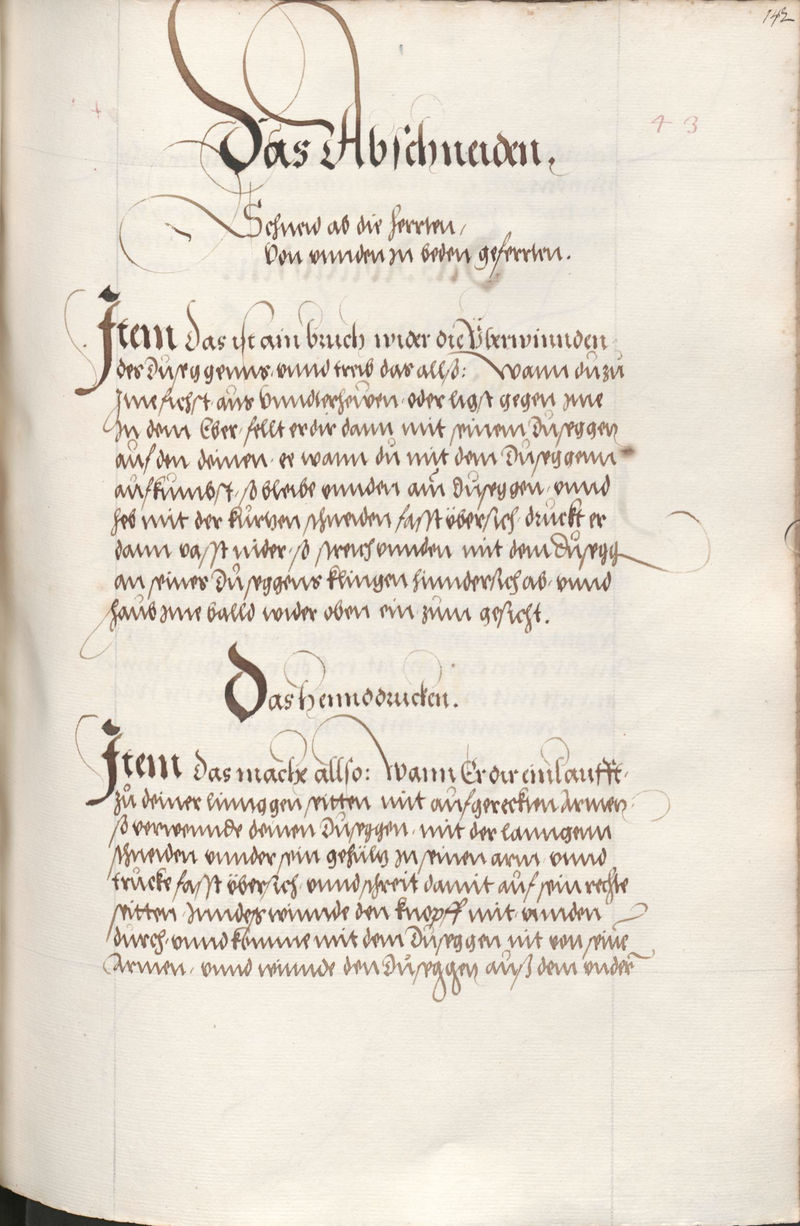 142
4 3
Das Abschneiden.
Schneid ab die herrten,
Von vnnden in beden geferrten.
Item das ist ain bruch wider die Vberwinnden
des Dusegg enns vnnd treib das allso: Wann du zu
Ime fichst aus vnnderheiven oder ligst gegen ime
In dem Eber fellt er dir dann mit seinem Duseggen
auf den deinen ee wann du mit dem Duseggenn
aufkumbst, so bleibe vnnden am Duseggen vnnd
heb mit der kurtzen schneiden fasst übersich druckt er
dann vasst nider so streich vnnden mit dem Dusegg
an seines Duseggens klingen hinndersich ab vnnd
haub ime balld wider oben ein zum gesicht.
Das Henndtdrucken.
Item das mache allso: Wann Er dir einlaufft,
zu deiner linnggen seitten mit aufgereckten Armen,
so verwennde deinen Duseggen mit der lanngenn
schneiden vnnder sein gehiltz in seinen arm vnnd
trucke fasst übersich vnnd schreit damit auf sein rechte
seitten Inndes winnde den knopff mit vnnden
durch vnnd komme mit dem Duseggen nit von seine
Armen, vnnd winnde den Duseggen auß dem vnder